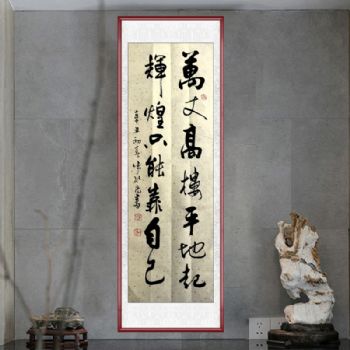 萬丈高樓平地起
輝煌只能靠自己